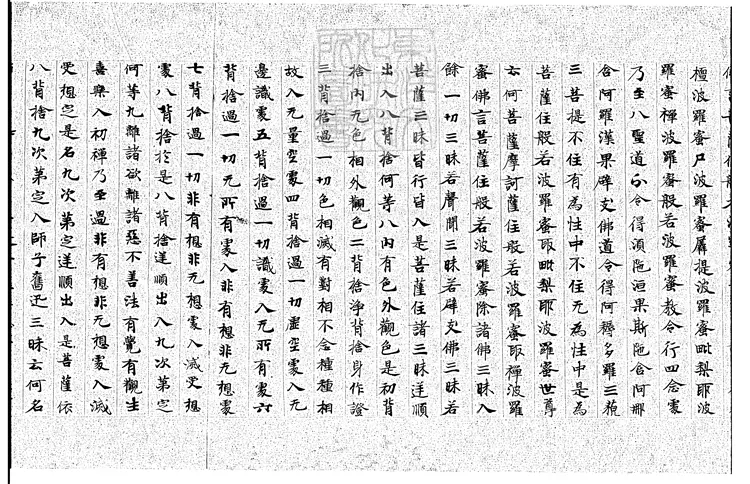 檀波羅蜜尸波羅蜜羼提波羅蜜毗梨耶波
羅蜜禪波羅蜜般若波羅蜜教令行四念處
乃至八聖道分令得須陁洹果斯陁含阿那
含阿羅漢果辟支佛道令得阿耨多羅三藐
三菩提不住有為性中不住无為性中是為
菩薩住般若波羅蜜取毗梨耶波羅蜜世尊
云何菩薩摩訶薩住般若波羅蜜取禪波羅
蜜佛言菩薩住般若波羅蜜除諸佛三昧入
餘一切三昧若聲聞三昧若辟支佛三昧若
菩薩三昧皆行皆入是菩薩住諸三昧逆順
出入八背捨何等八內有色外觀色是初背
捨內无色相外觀色二背捨淨背捨身作證
三背捨過一切色相滅有對相不念種種相
故入无量空處四背捨過一切虛空處入无
邊識處五背捨過一切識處入无所有處六
背捨過一切无所有處入非有想非无想處
七背捨過一切非有想非无想處入滅受想
處八背捨於是八背捨逆順出入九次第定
何等九離諸欲離諸惡不善法有覺有觀生
喜樂入初禪乃至過非有想非无想處入滅
受想定是名九次第定逆順出入是菩薩依
八背捨九次第定入師子奮迅三昧云何名